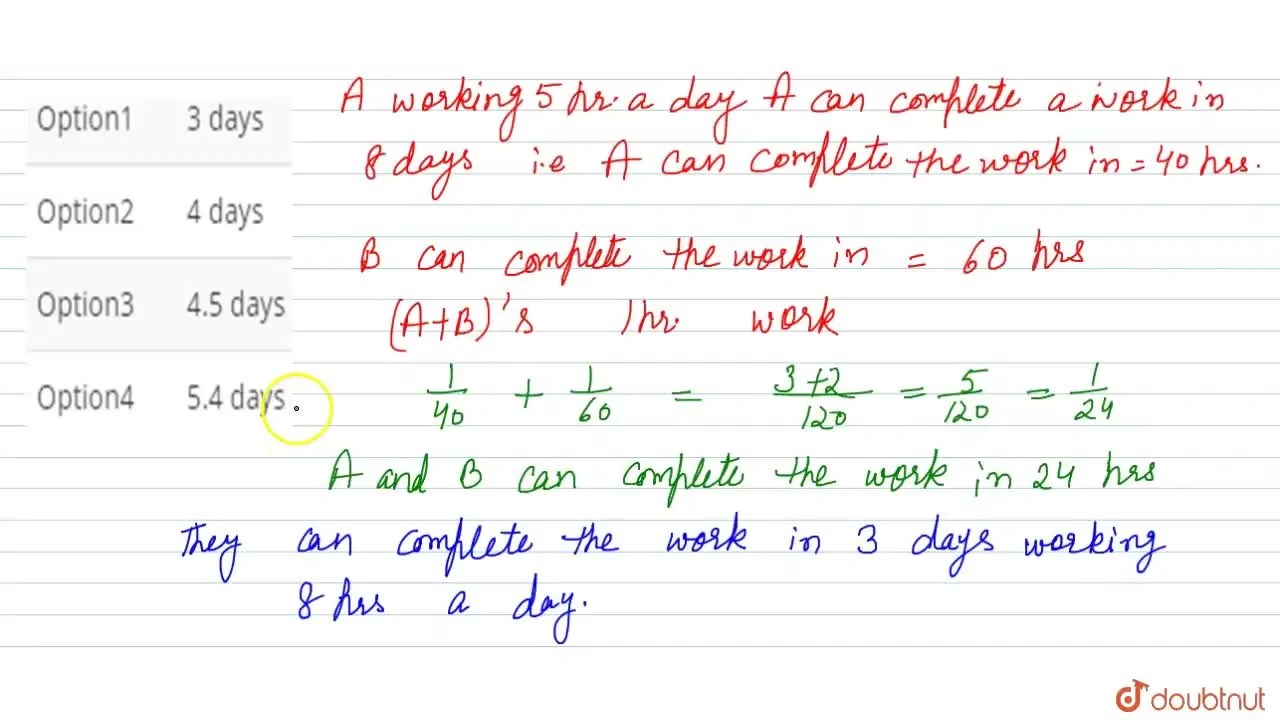 Option1 3 days
Option2 4 days
Option3 4.5 days
Option4 5.4 days
A working 5 hr. a day A can complete a work in
8 days i.e A can complete the work in = 40 hrs.
B can complete the work in = 60 hrs
(A+B)'s 1hr. work
1/40 + 1/60 = 3+2/120 = 5/120 = 1/24
A and B can complete the work in 24 hrs
They can complete the work in 3 days working
8 hrs a day.
doubtnut